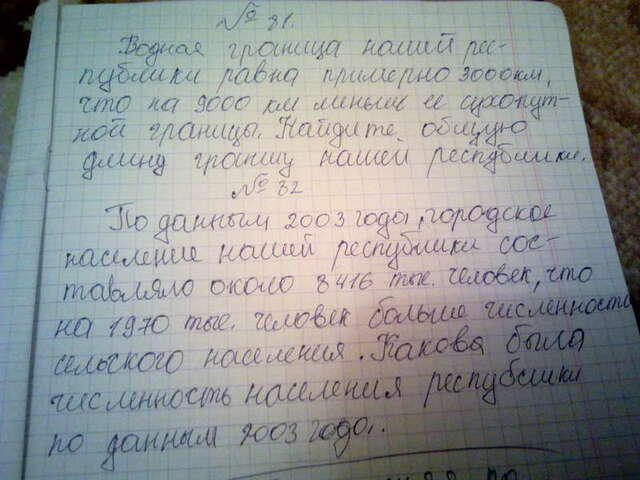 № 81.
Водная граница нашей рес-
публики равна примерно 3000 км,
что на 9000 км меньше ее сухопут-
ной границы. Найдите общую
длину границу нашей республики.
№ 82
По данным 2003 годы, городское
население нашей республики сос-
тавляло около 8416 тыс. человек, что
на 1970 тыс. человек больше численность
сельского населения. Какова была
численность населения республики
по данным 2003 годо.